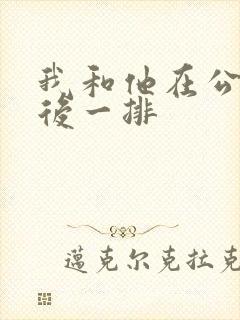 我和他在公
後一排
蓝克尔克拉克